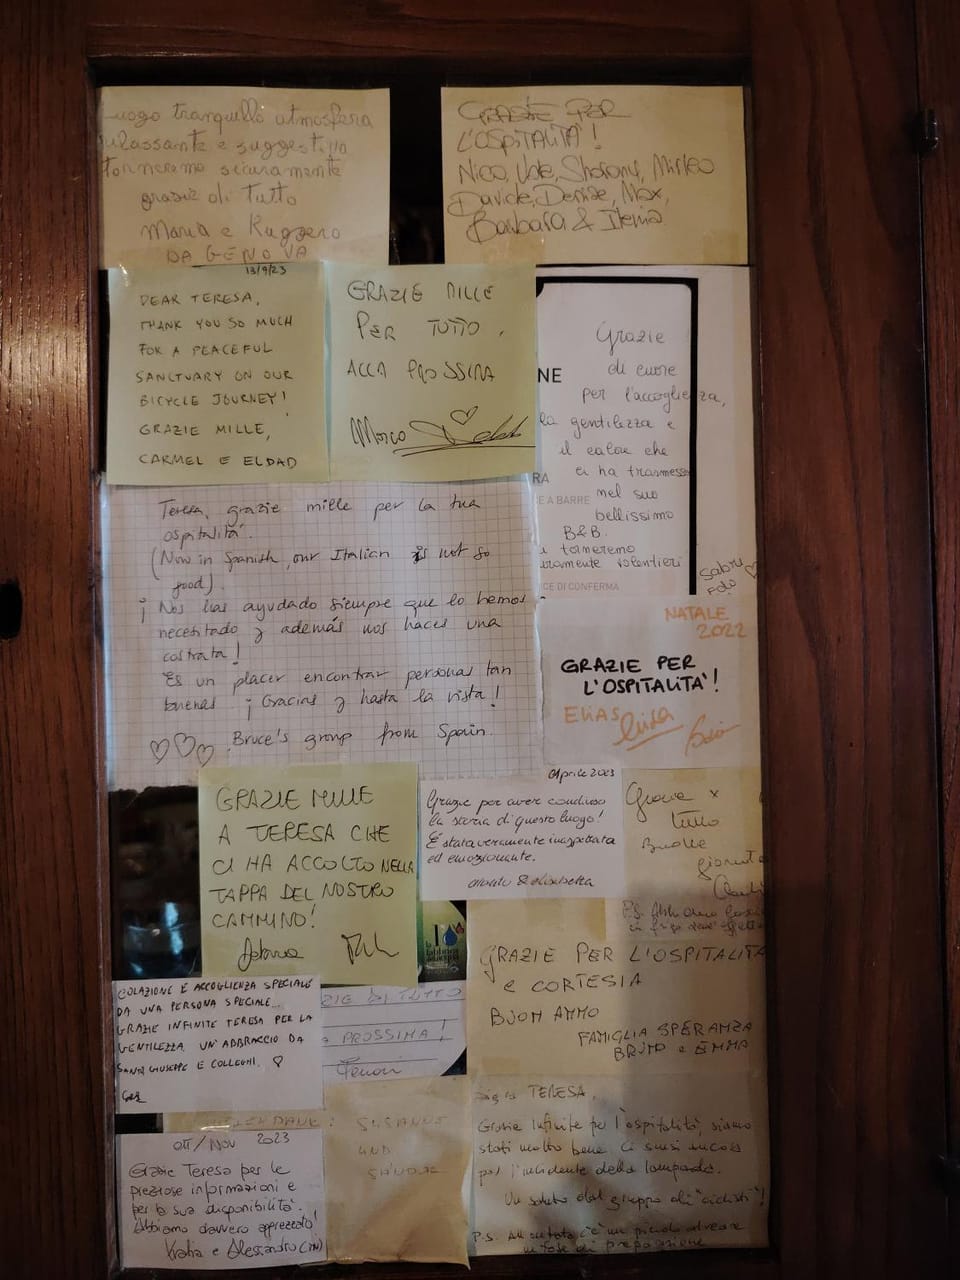 Luogo tranquillo atmosfera
rilassante e suggestiva
torneremo sicuramente
grazie di tutto
Maria e Ruggero
DA GENOVA
GRAZIE PER
L'OSPITALITÀ!
Nico, Sharon, Mirko
Davide, Denise, Max,
Barbara & Ilenia
13/9/23
DEAR TERESA,
THANK YOU SO MUCH
FOR A PEACEFUL
SANCTUARY ON OUR
BICYCLE JOURNEY!
GRAZIE MILLE,
CARMEL E ELDAD
GRAZIE MILLE
PER TUTTO,
ALLA PROSSIMA
Marco
Grazie
di cuore
per l'accoglienza,
la gentilezza e
il calore che
ci ha trasmesso
nel suo
bellissimo
B&B.
torneremo
volentieri
NE
RA
E A BARRE
ICE DI CONFERMA
Teresa, grazie mille per la tua
ospitalità.
(Now in Spanish, our Italian is not so
good).
¡Nos has ayudado siempre que lo hemos
necesitado y además nos haces una
!
Es un placer encontrar personas tan
buenas ¡Gracias y hasta la vista!
Bruce's group from Spain.
NATALE
2022
GRAZIE PER
L'OSPITALITA'!
ELIAS
GRAZIE MILLE
A TERESA CHE
CI HA ACCOLTO NELLA
TAPPA DEL NOSTRO
CAMMINO!
Aprile 2023
Grazie per aver condiviso
la storia di questo luogo!
È stata veramente inaspettata
ed emozionante.
& Elisabetta
Grazie x
tutto
Buone
giornate
P.S.
la
fabbrica
dell'acqua
GRAZIE PER L'OSPITALITÀ
e CORTESIA
BUON ANNO
FAMIGLIA SPERANZA
BRUNO e EMMA
COLAZIONE E ACCOGLIENZA SPECIALE
DA UNA PERSONA SPECIALE...
GRAZIE INFINITE TERESA PER LA
GENTILEZZA. UN'ABBRACCIO DA
GIUSEPPE E COLLEGHI.
ZIE DI TUTTO
PROSSIMA!
SUSANNE
AND
Sig.ra TERESA,
Grazie infinite per l'ospitalità, siamo
stati molto bene. Ci scusi ancora
per l'incidente della lampada.
Un saluto dal gruppo di "ciclisti"!
P.S. All'entrata c'è un piccolo alveare
in fase di preparazione
OTT/NOV 2023
Grazie Teresa per le
preziose informazioni e
per la sua disponibilità.
Abbiamo davvero apprezzato!
Katia e Alessandro